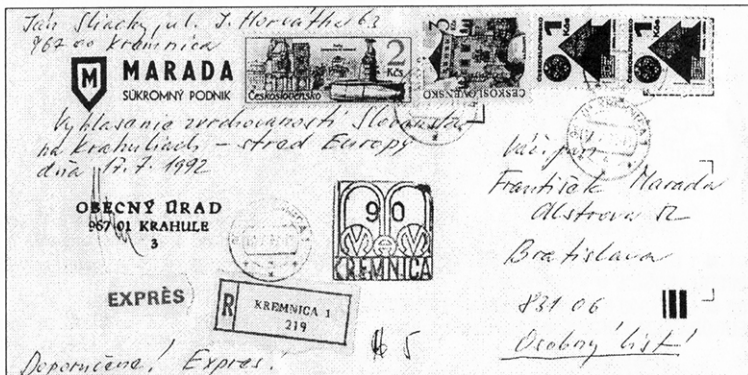 Ján Sliacky, ul. J. Horvátha 63
967 00 Kremnica
M
MARADA
SÚKROMNÝ PODNIK
2 Kčs
Československo
3 Kčs
ČESKOSLOVENSKO
1 Kčs
ČESKOSLOVENSKO
1 Kčs
ČESKOSLOVENSKO
Vyhlásenie zvrchovanosti Slovenska
na Krahuliach – stred Europy
dňa 17. 7. 1992
OBECNÝ ÚRAD
967 01 KRAHULE
3
90
KREMNICA
EXPRÈS
R
KREMNICA 1
219
Doporučene! Expres!
Váž. pán
František Marada
Bratislava
831 06
Osobný list!